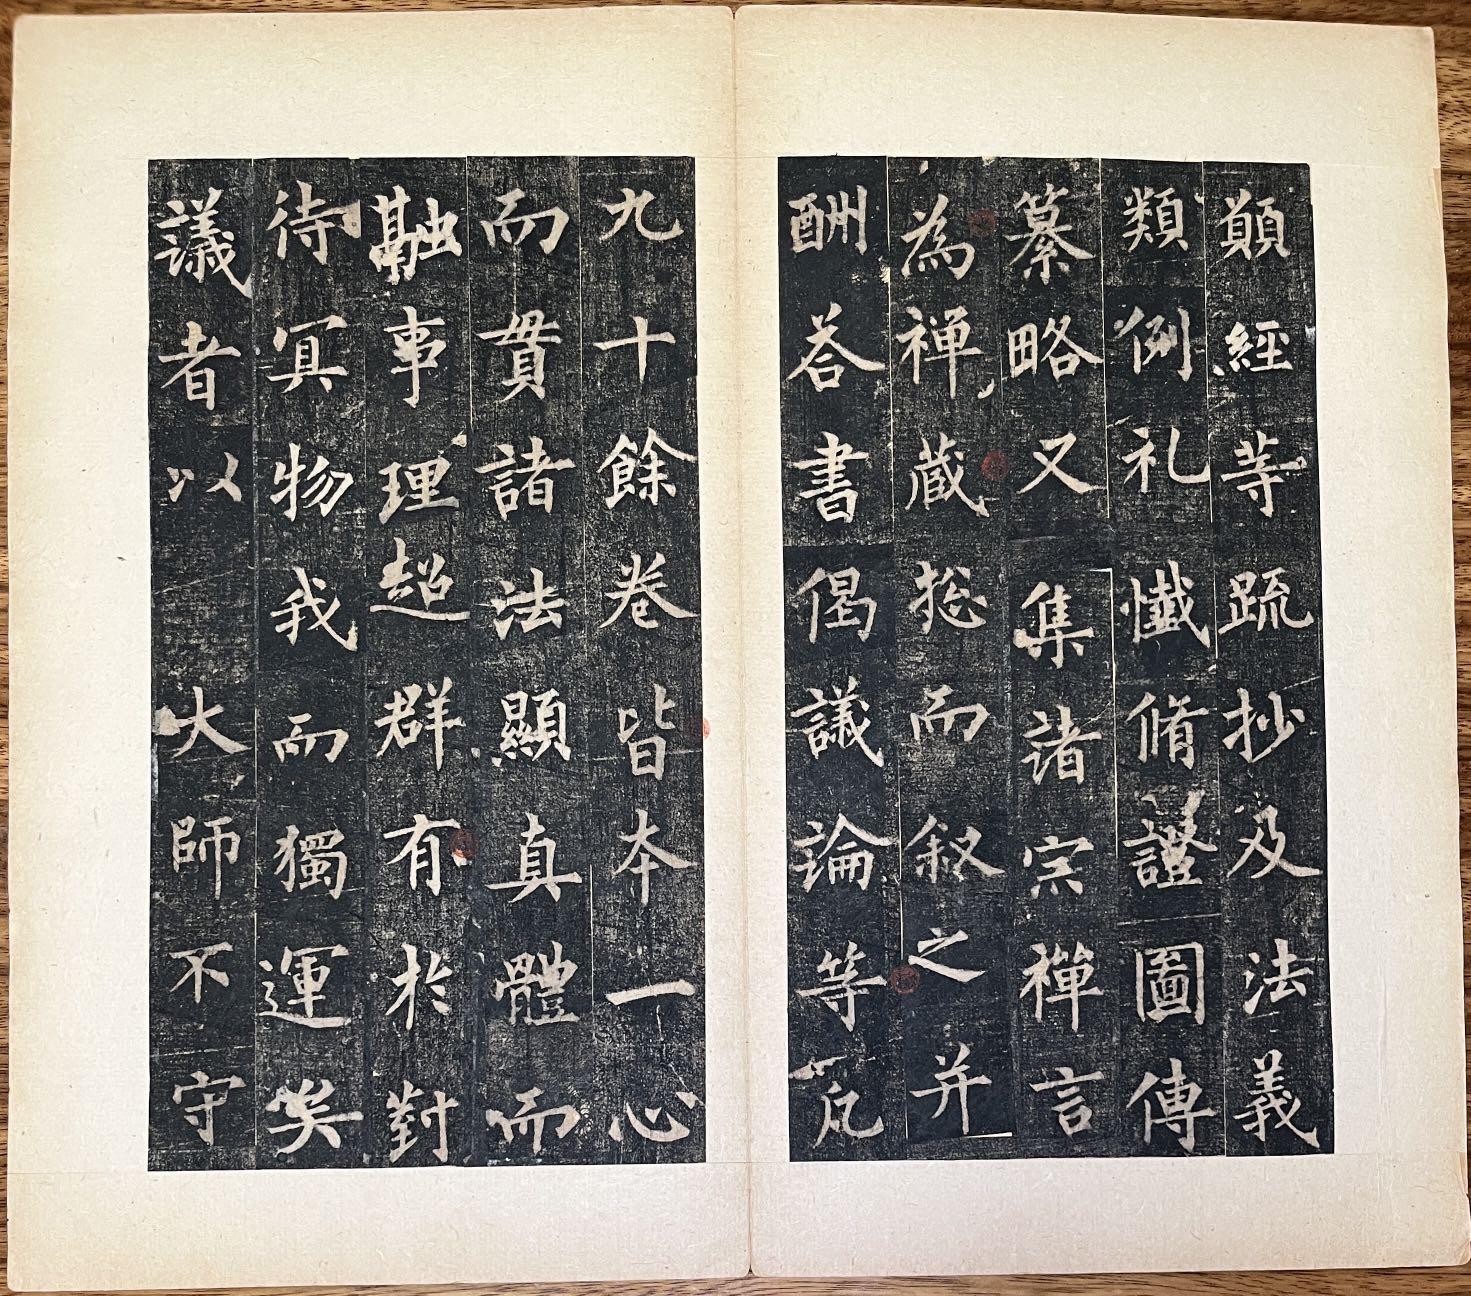 願經等䟽抄及法義
類例礼懺脩證圖傳
纂略又集諸宗禪言
為禪藏揔而叙之并
酬荅書偈議論等凢
九十餘卷皆本一心
而貫諸法顯真體而
融事理超群有於對
待冥物我而獨運矣
議者以大師不守